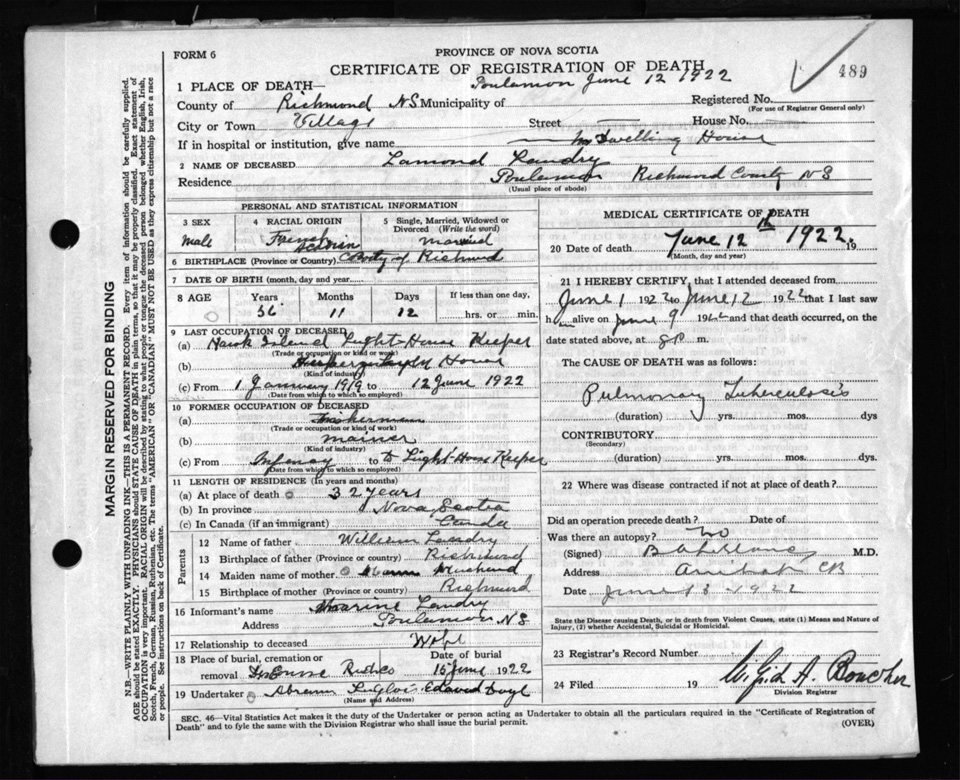 FORM 6
PROVINCE OF NOVA SCOTIA
CERTIFICATE OF REGISTRATION OF DEATH
489
1 PLACE OF DEATH— Poulamon June 12 1922
County of Richmond NS Municipality of
Registered No.
(For use of Registrar General only)
City or Town Village Street House No.
If in hospital or institution, give name Dwelling House
2 NAME OF DECEASED Lamond Landry
Residence Poulamon Richmond County NS
(Usual place of abode)
PERSONAL AND STATISTICAL INFORMATION
3 SEX
Male
4 RACIAL ORIGIN
French
5 Single, Married, Widowed or Divorced (Write the word)
married
6 BIRTHPLACE (Province or Country) County of Richmond
7 DATE OF BIRTH (month, day and year)
8 AGE
Years Months Days If less than one day,
36 11 12 hrs. or min.
9 LAST OCCUPATION OF DECEASED
(a) Hawk Island Light House Keeper
(Trade or occupation or kind of work)
(b) House
(Kind of industry)
(c) From 1 January 1919 to 12 June 1922
(Date from which to which so employed)
10 FORMER OCCUPATION OF DECEASED
(a) Fisherman
(Trade or occupation or kind of work)
(b) mainer
(Kind of industry)
(c) From Infency to Light House Keeper
(Date from which to which so employed)
11 LENGTH OF RESIDENCE (In years and months)
(a) At place of death 32 years
(b) In province Nova Scotia
(c) In Canada (if an immigrant) Canda
Parents
12 Name of father William Landry
13 Birthplace of father (Province or country) Richmond
14 Maiden name of mother
15 Birthplace of mother (Province or country) Richmond
16 Informant's name Landry
Address Poulamon NS
17 Relationship to deceased Wife
18 Place of burial, cremation or removal
Date of burial
15 June 1922
19 Undertaker Abram Edward Doyl
(Name and Address)
MEDICAL CERTIFICATE OF DEATH
20 Date of death June 12th 1922 19
(Month, day and year)
21 I HEREBY CERTIFY, that I attended deceased from
June 1 1922 to June 12 1922 that I last saw
h im alive on June 9 1922 and that death occurred, on the
date stated above, at 8 P m.
The CAUSE OF DEATH was as follows:
Pulmonary Tuberculosis
(duration) yrs. mos. dys
CONTRIBUTORY
(Secondary)
(duration) yrs. mos. dys
22 Where was disease contracted if not at place of death?
Did an operation precede death? Date of
Was there an autopsy? No
(Signed) M.D.
Address Arichat CB
Date June 13 1922
State the Disease causing Death, or in death from Violent Causes, state (1) Means and Nature of Injury, (2) whether Accidental, Suicidal or Homicidal.
23 Registrar's Record Number
24 Filed 19 Wilfrid A. Boucher
Division Registrar
SEC. 46—Vital Statistics Act makes it the duty of the Undertaker or person acting as Undertaker to obtain all the particulars required in the "Certificate of Registration of
Death" and to fyle the same with the Division Registrar who shall issue the burial permit.
(OVER)
MARGIN RESERVED FOR BINDING
N.B.—WRITE PLAINLY WITH UNFADING INK—THIS IS A PERMANENT RECORD. Every item of information should be carefully supplied.
AGE should be stated EXACTLY. PHYSICIANS should STATE CAUSE OF DEATH in plain terms, so that it may be properly classified. Exact statement of
OCCUPATION is very important. RACIAL ORIGIN will be described by stating to what people or tongue the deceased person belonged whether English, Irish,
Scotch, French, German, Russian, Ruthenian, etc. The terms "AMERICAN" OR "CANADIAN" MUST NOT BE USED as they express citizenship but not a race
or people. See instructions on back of Certificate.